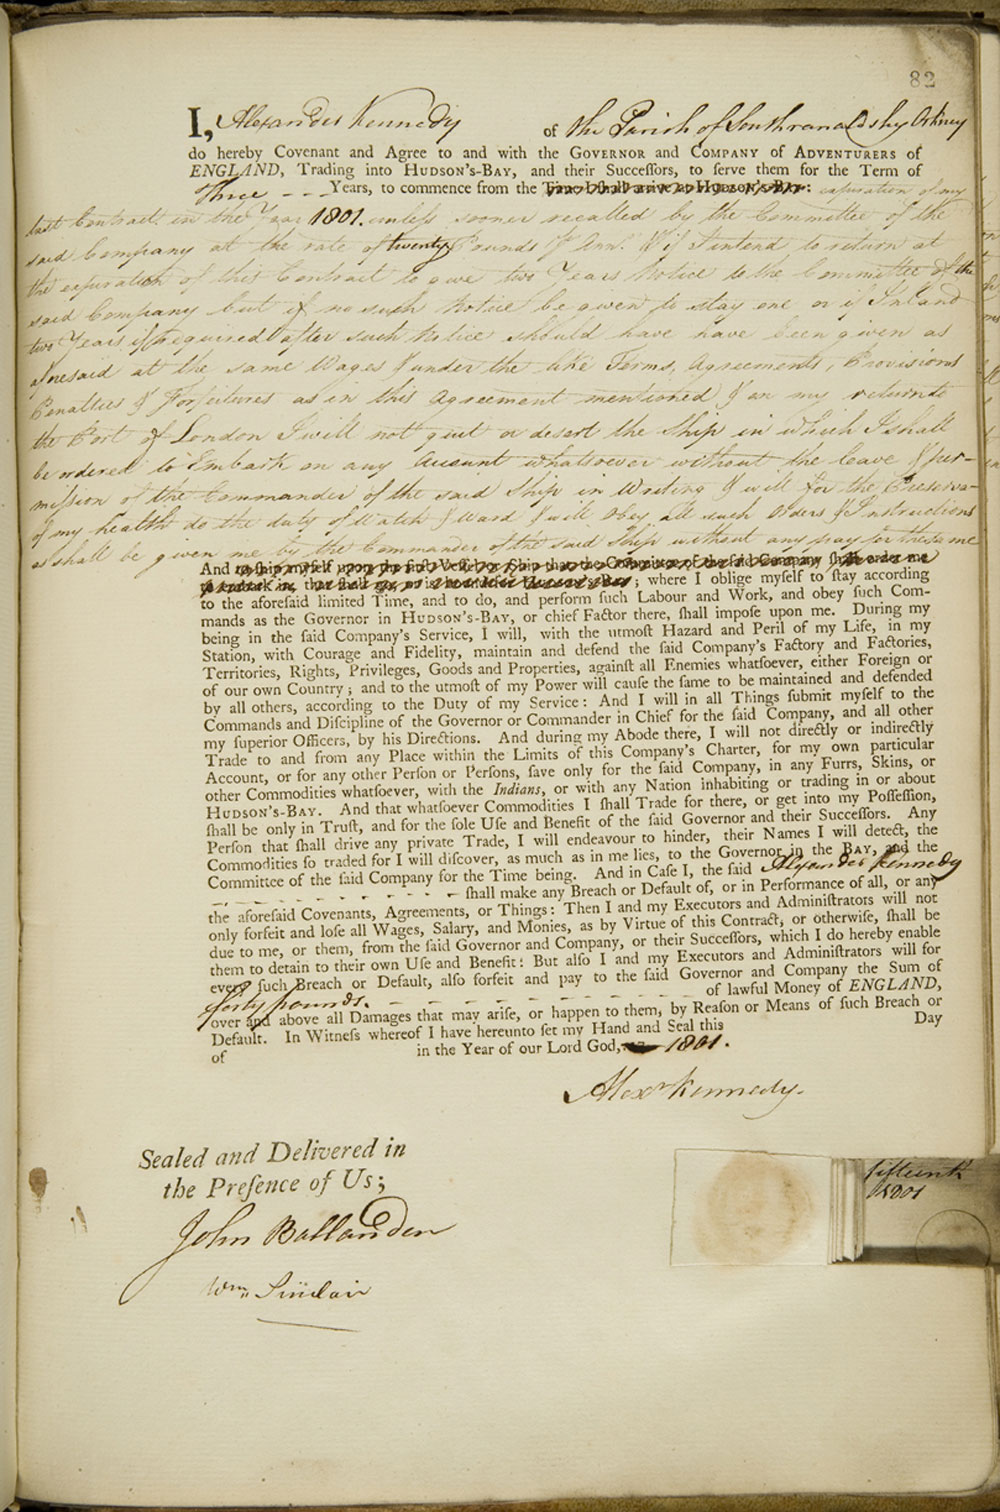 82
I, Alexander Kennedy of the Parish of Southranaldshy Orkney
do hereby Covenant and Agree to and with the GOVERNOR and COMPANY of ADVENTURERS of
ENGLAND, Trading into HUDSON'S-BAY, and their Succeſſors, to ſerve them for the Term of
Three - - - Years, to commence from the Time I ſhall arive at HUDSON'S-BAY: expiration of my
last Contract in the Year 1801. unless sooner recalled by the Committee of the
said Company at the rate of twenty Pounds Pr Annm. & if I intend to return at
the expiration of this Contract to give two Years Notice to the Committee of the
said Company but if no such Notice be given to stay one or if Inland
two Years if required after such Notice should have have been given as
aforesaid at the same Wages & under the like Terms, Agreements, Provisions
Penalties & Forfeitures as in this Agreement mentioned & on my return to
the Port of London I will not quit or desert the Ship in which I shall
be ordered to Embark on any Account whatsoever without the leave & per-
mission of the Commander of the said Ship in Writing & will for the Preserva-
of my health do the duty of Watch & Ward & will obey all such Orders & Instructions
as shall be given me by the Commander of the said Ship without any pay for the same
And to ſhip myſelf upon the firſt Veſſel or Ship that the Committee of the ſaid Company ſhall order me
; where I oblige myſelf to ſtay according
to the aforeſaid limited Time, and to do, and perform ſuch Labour and Work, and obey ſuch Com-
mands as the Governor in HUDSON'S-BAY, or chief Factor there, ſhall impoſe upon me. During my
being in the ſaid Company's Service, I will, with the utmoſt Hazard and Peril of my Life, in my
Station, with Courage and Fidelity, maintain and defend the ſaid Company's Factory and Factories,
Territories, Rights, Privileges, Goods and Properties, againſt all Enemies whatſoever, either Foreign or
of our own Country; and to the utmoſt of my Power will cauſe the ſame to be maintained and defended
by all others, according to the Duty of my Service: And I will in all Things ſubmit myſelf to the
Commands and Diſcipline of the Governor or Commander in Chief for the ſaid Company, and all other
my ſuperior Officers, by his Directions. And during my Abode there, I will not directly or indirectly
Trade to and from any Place within the Limits of this Company's Charter, for my own particular
Account, or for any other Perſon or Perſons, ſave only for the ſaid Company, in any Furrs, Skins, or
other Commodities whatſoever, with the Indians, or with any Nation inhabiting or trading in or about
HUDSON'S-BAY. And that whatſoever Commodities I ſhall Trade for there, or get into my Poſſeſſion,
ſhall be only in Truſt, and for the ſole Uſe and Benefit of the ſaid Governor and their Succeſſors. Any
Perſon that ſhall drive any private Trade, I will endeavour to hinder, their Names I will detect, the
Commodities ſo traded for I will diſcover, as much as in me lies, to the Governor in the BAY, and the
Committee of the ſaid Company for the Time being. And in Caſe I, the ſaid Alexander Kennedy
- - - - - - - - - ſhall make any Breach or Default of, or in Performance of all, or any
the aforeſaid Covenants, Agreements, or Things: Then I and my Executors and Adminiſtrators will not
only forfeit and loſe all Wages, Salary, and Monies, as by Virtue of this Contract, or otherwiſe, ſhall be
due to me, or them, from the ſaid Governor and Company, or their Succeſſors, which I do hereby enable
them to detain to their own Uſe and Benefit: But alſo I and my Executors and Adminiſtrators will for
every ſuch Breach or Default, alſo forfeit and pay to the ſaid Governor and Company the Sum of
forty pounds. - - - - - - - - - - of lawful Money of ENGLAND,
over and above all Damages that may ariſe, or happen to them, by Reaſon or Means of ſuch Breach or
Default. In Witneſs whereof I have hereunto ſet my Hand and Seal this Day
of in the Year of our Lord God, 1801.
Alexr Kennedy.
Sealed and Delivered in
the Preſence of Us;
fifteenth
1801
John Ballanden
Wm. Sinclair